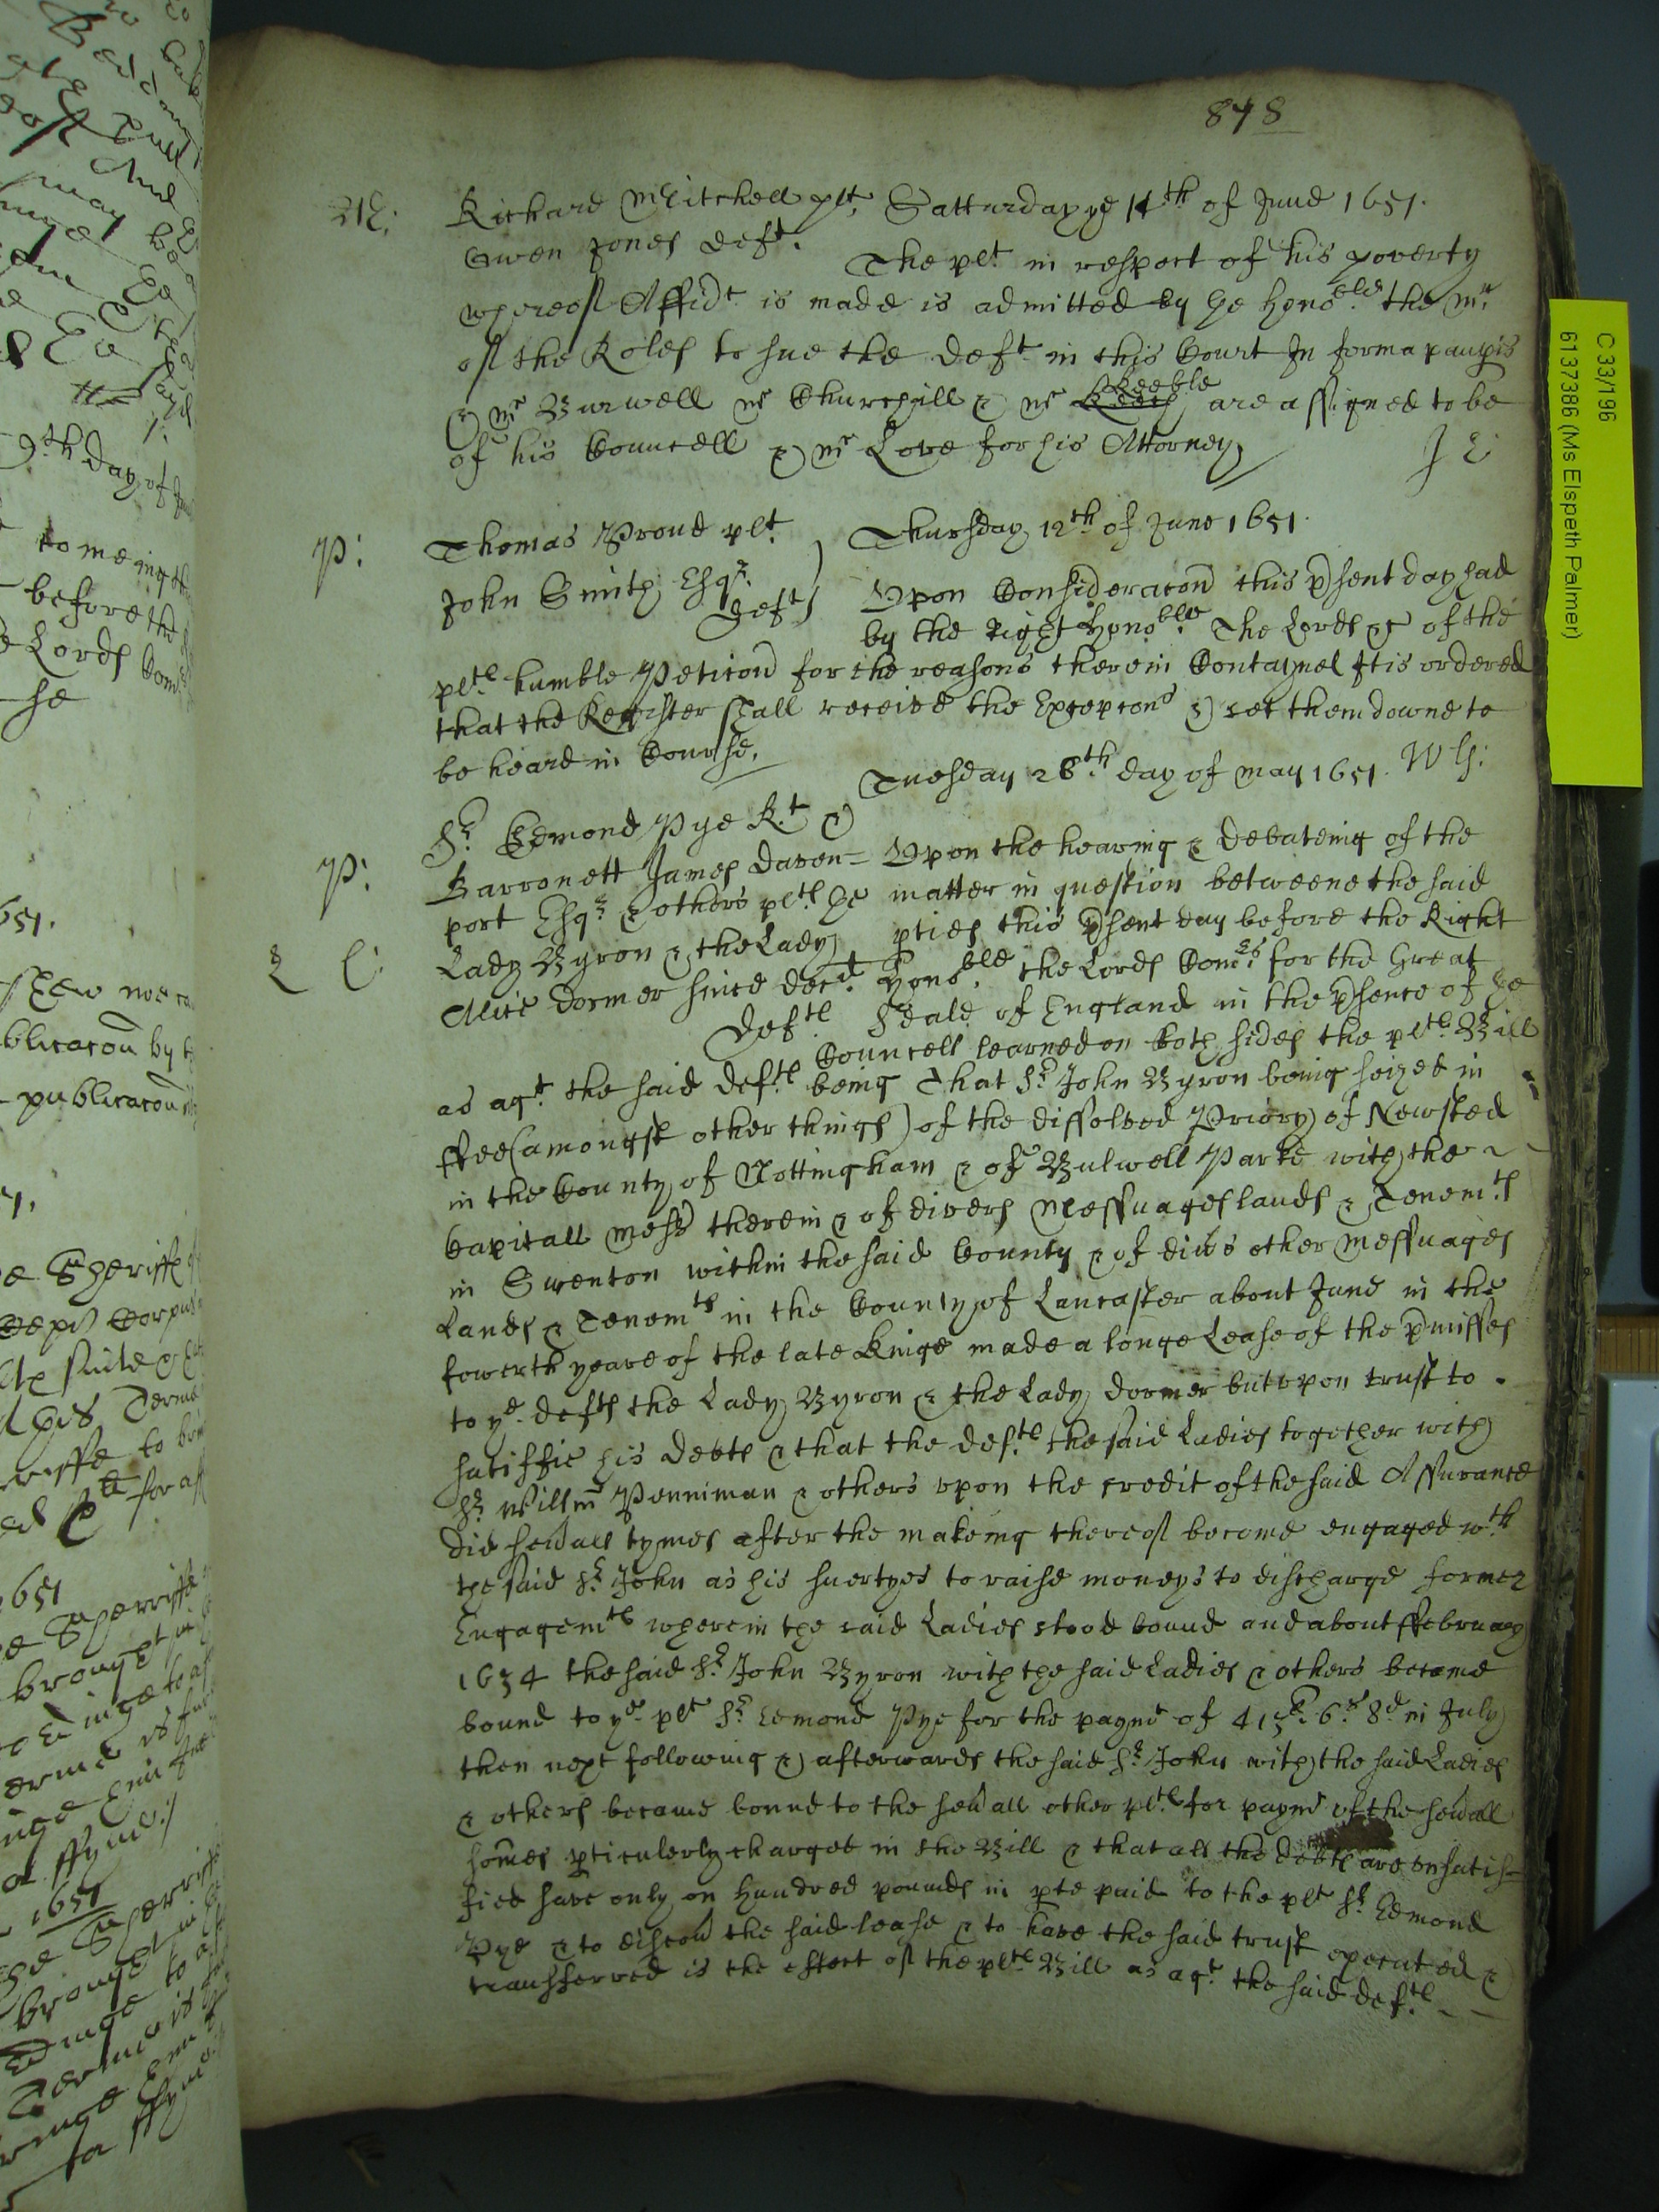 848
M: Richard Mitchell plt Satturday ye 14th of June 1651.
Owen Jones deft.
The plt in respect of his poverty
whereof Affidt is made is admitted by the Honoble the Mr
of the Roles to sue the deft in this Court In forma paupis
& Mr Burwell Mr Churchill & Mr Keeble are assigned to be
of his Councell & Mr Love for his Attorney
P: Thomas Proud plt Thursday 12th of June 1651.
John Smith Esqr deft
Upon Consideracon this psent day had
by the Right Honoble The Lords &c of the
plts humble Peticon for the reasons therein Contayned It is ordered
that the Register shall receive the Excepcons & set them downe to
be heard in Course.
Tuesday 28th day of May 1651.
P: Sr Edmond Pye Kt &
Barronett James Daven= Upon the hearing & debateing of the
port Esqr & others plts the matter in question betweene the said
Lady Byron & the Lady pties this psent day before the Right
Alice Dormer since decd Honoble the Lords Comrs for the Great
Defts Seale of England in the psence of the
Councell learned on both sides the plts Bill
as agt the said defts being That Sr John Byron being seized in
ffee (amongst other things) of the dissolved Priory of Newsted
in the County of Nottingham & of Bulwell Parke with the
Capitall mess therein & of divers Messuages lands & Tenemts
in Swenton within the said County & of divs other Messuages
Lands & Tenemts in the County of Lancaster about June in the
fowerth yeare of the late Kinge made a longe Lease of the pmisses
to ye defts the Lady Byron & the Lady Dormer but upon trust to
satisffie his debts & that the defts the said Ladies together with
Sr Willm Penniman & others upon the credit of the said Assurance
did sevall tymes after the makeing thereof become engaged wth
the said Sr John as his suertyes to raise moneys to discharge former
Engagemts wherein the said Ladies stood bound and about ffebruary
1634 the said Sr John Byron with the said Ladies & others became
bound to ye plt Sr Edmond Pye for the paymt of 415l. 6s. 8d in July
then next following & afterwards the said Sr John with the said Ladies
& others became bound to the sevall other plts for paymt of the sevall
somes pticulerly charged in the Bill & that all the debts are unsatis=
fied save only on Hundred pounds in pte paid to the plt Sr Edmond
Pye & to discov the said lease & to have the said trust executed &
transferred is the effect of the plts Bill as agt the said defts
C 33/196
6137386 (Ms Elspeth Palmer)
9th day of
before the
Lords Com
1651